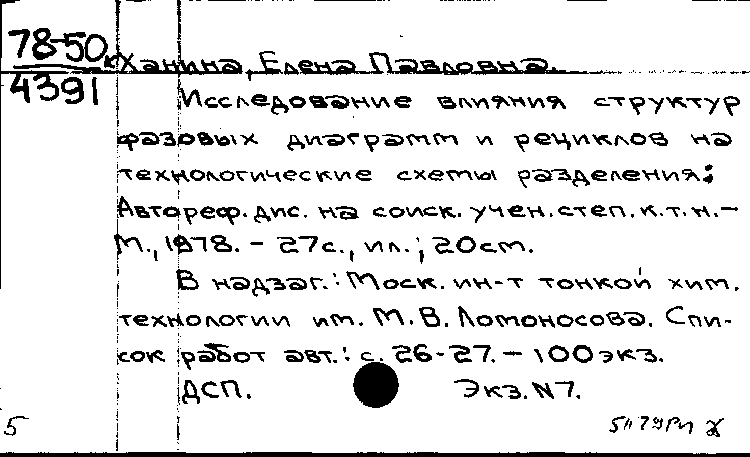 78-50к
4391
Ханина, Елена Павловна.
Исследование влияния структур
фазовых диаграмм и рециклов на
технологические схемы разделения:
Автореф. дис. на соиск. учен. степ. к.т.н. -
М., 1978. - 27с., ил.; 20см.
В надзаг.: Моск. ин-т тонкой хим.
технологии им. М.В. Ломоносова. Спи-
сок работ авт.: с. 26-27. - 100экз.
ДСП. Экз. N7.
5